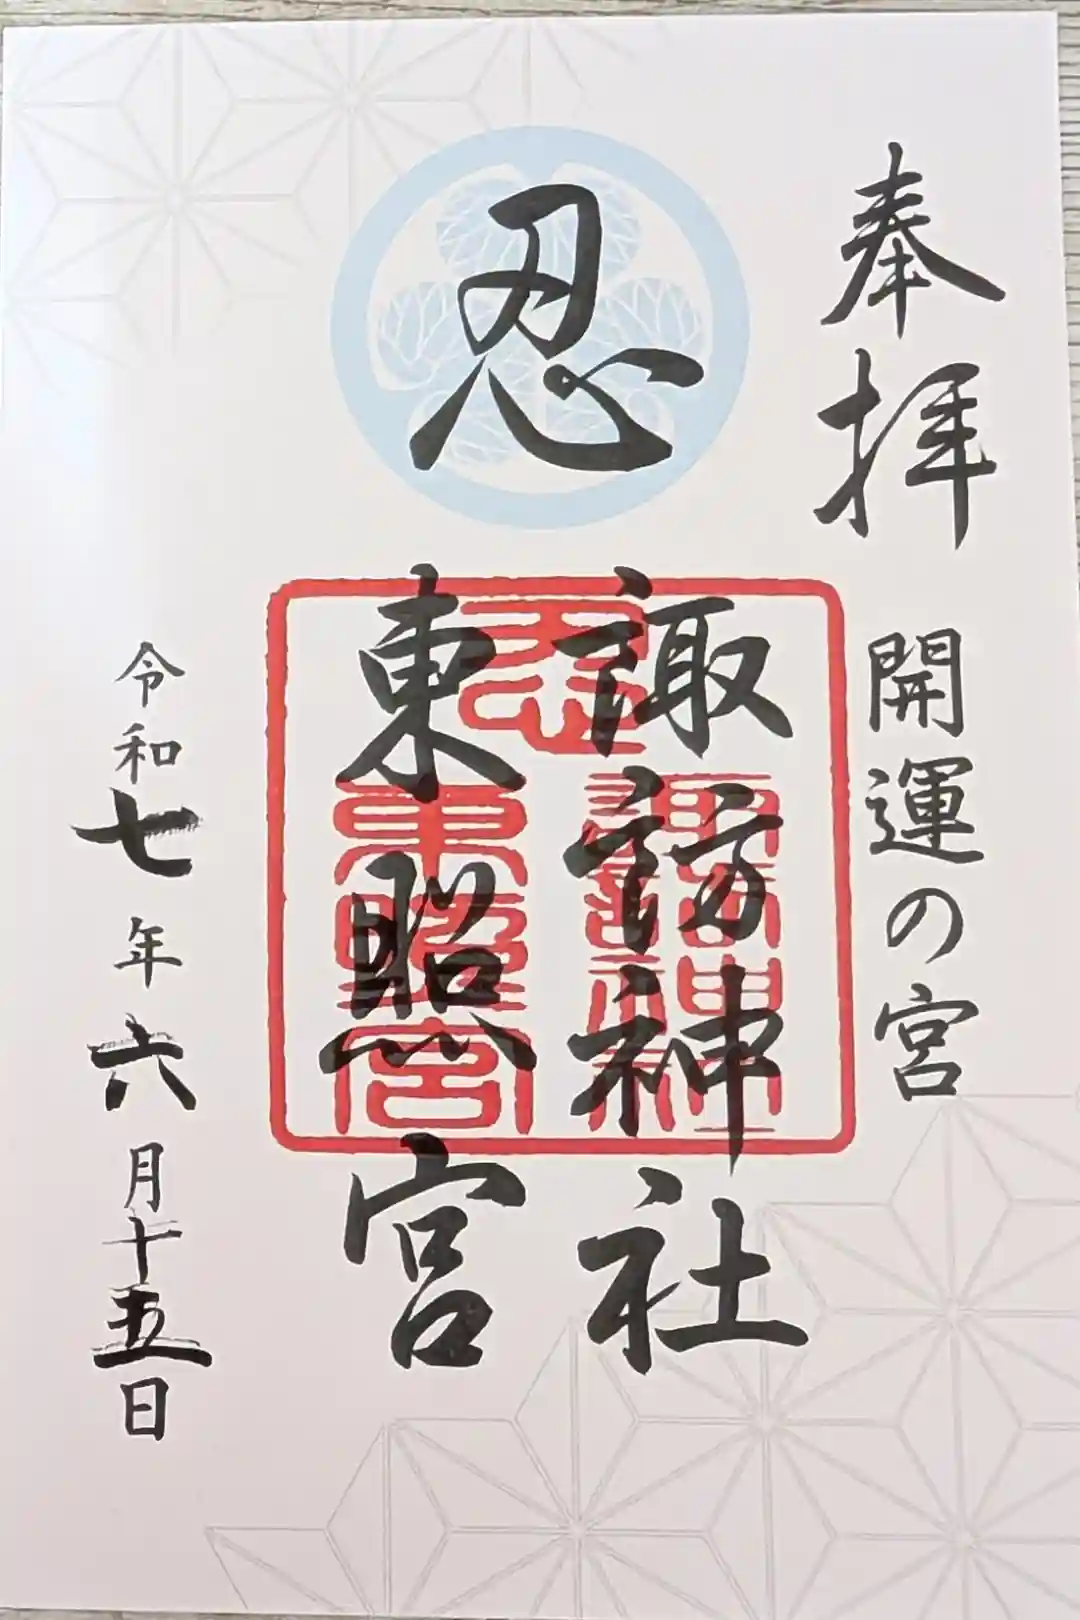 奉拝
開運の宮
忍
諏訪神社
東照宮
忍
諏訪神社
東照宮
令和七年六月十五日